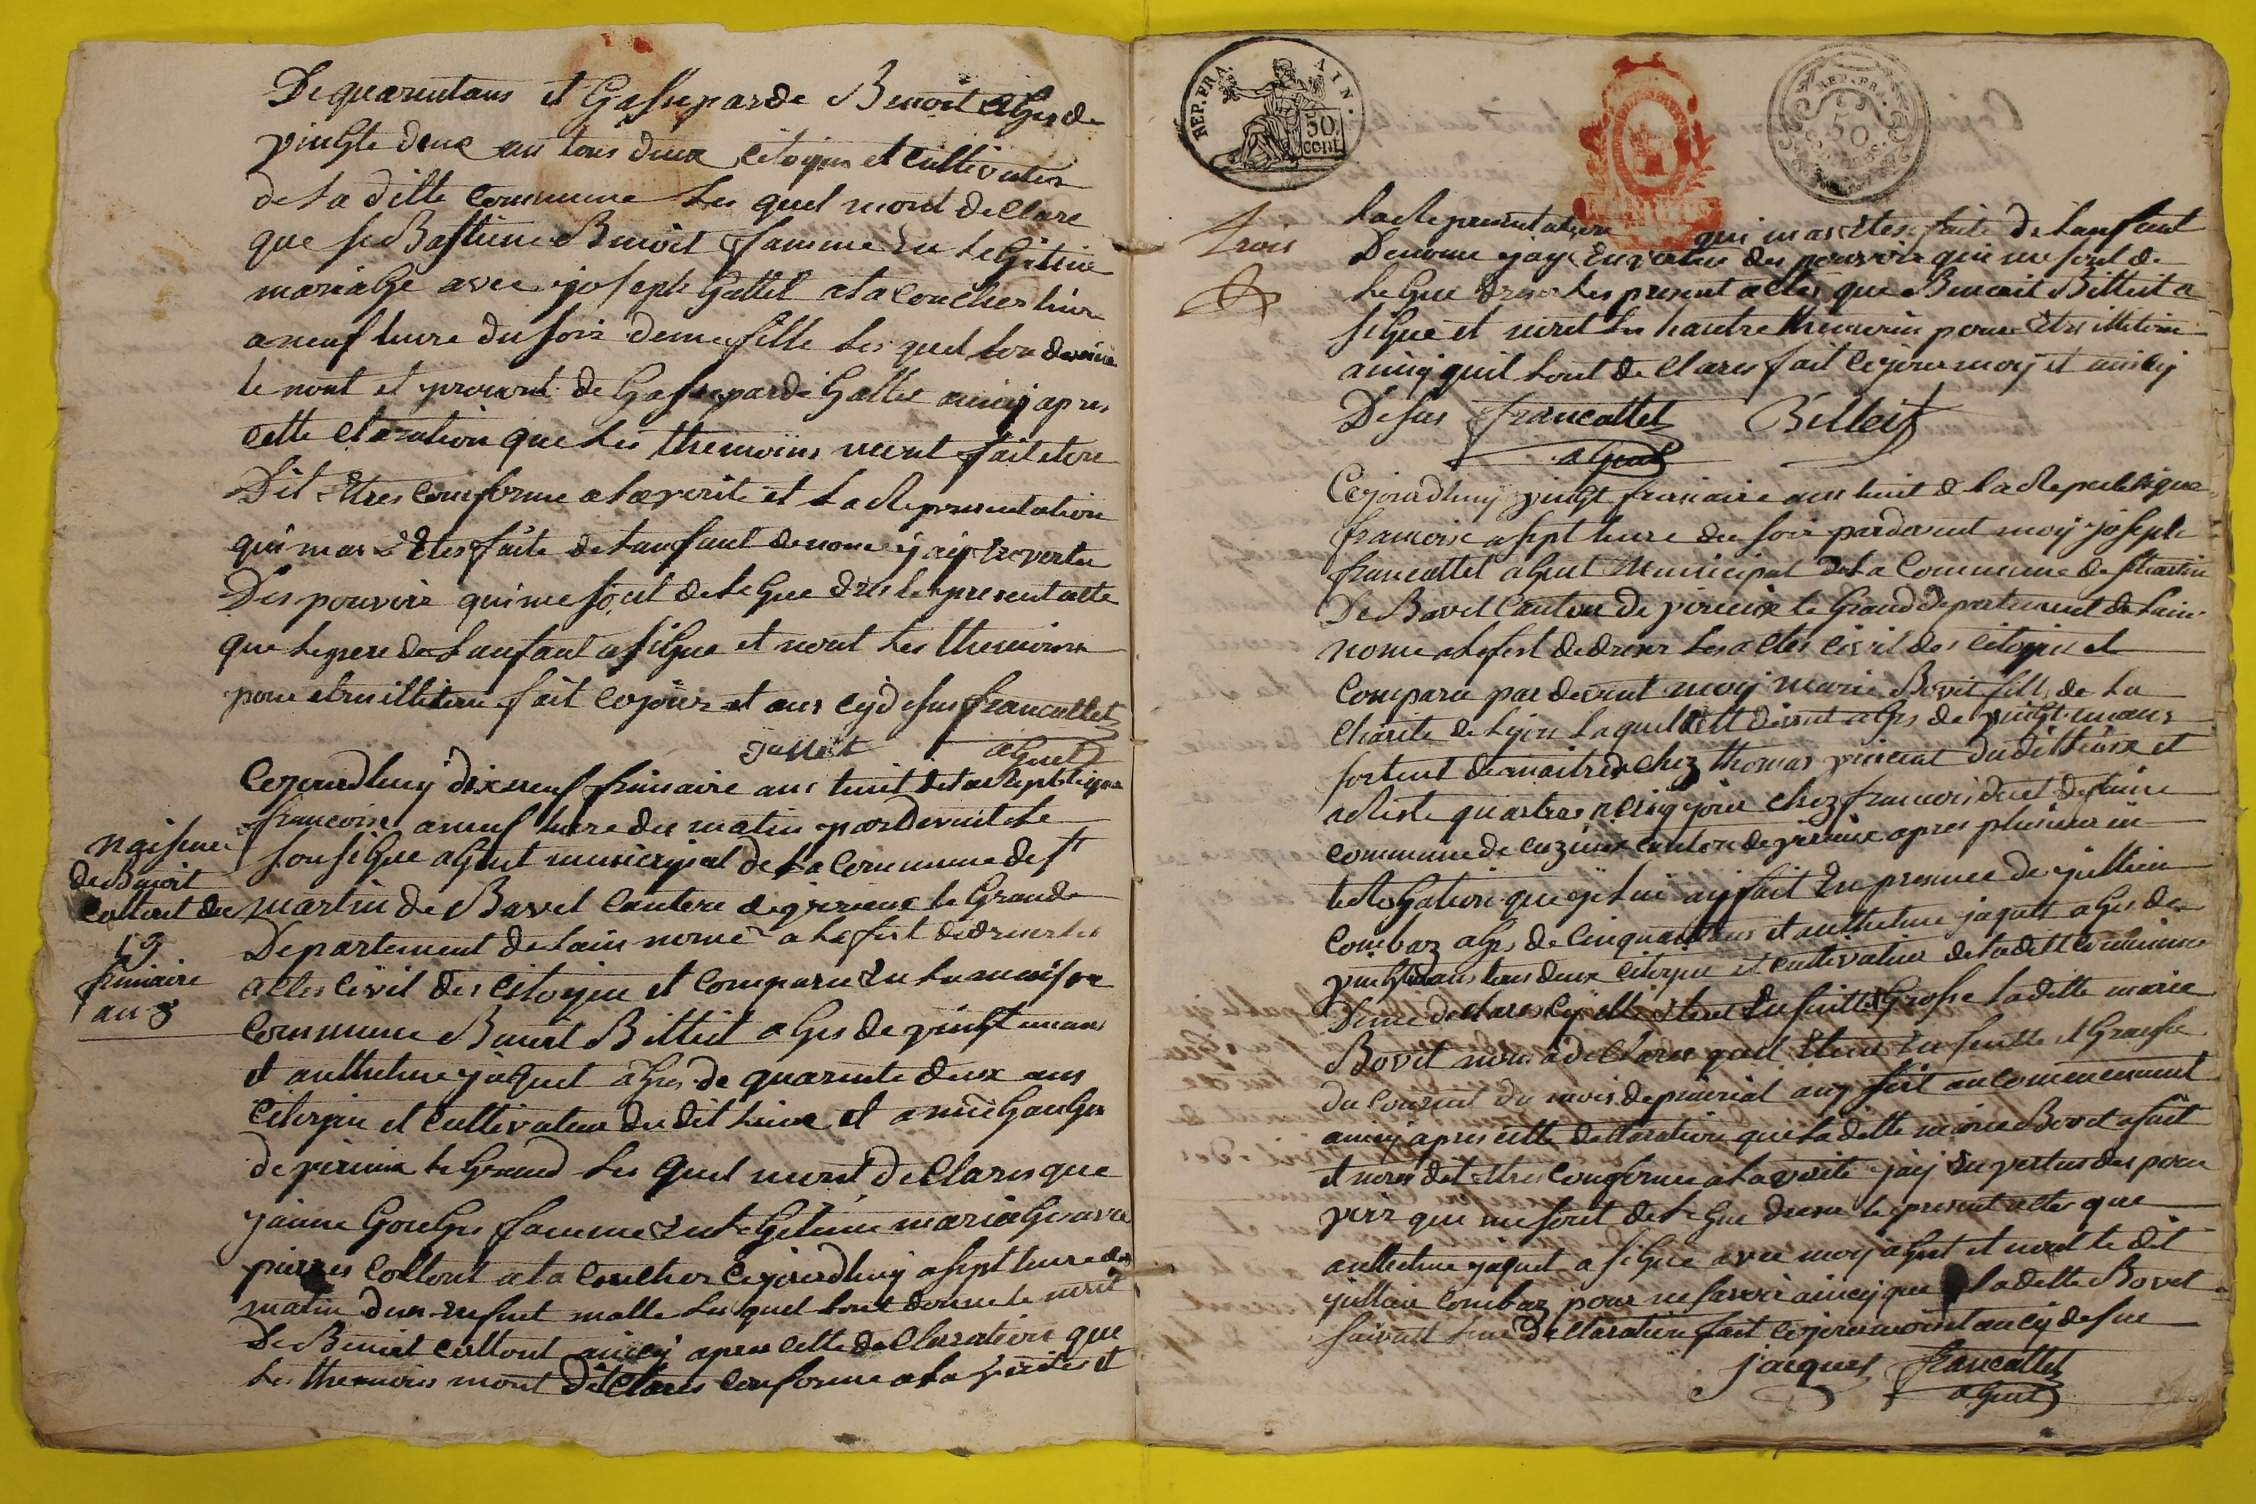 De quarentans et Gasseparde Benoit ages de
vinghte deux an tous deux citoyin et cultivateur
de la ditte commune les quel mont declare
que se Bastiene Benoit famme en legitime
mariage avec joseph Gallet ata coucher hier
a neuf heure du soir deune fille les quel lon donnée
le nont et pronont de Gasseparde Gallet aincy apres
cette claration que les themoins mont fait et on
Dit Etres comforme a la verite et la Representation
qui mas Etes faite de lanfant denome jay en vertu
Des pouvoir qui me sont delegue dres le present acte
que le pere de lanfant a signe et nont les themoins
pour etre illiterai fait ce jour et ans cy desus francallet
Gallet agent
Cejourdhuy dix neuf frimaire ans huit de la Republique
francoise a neuf heure du matin par devent le
sousigue agent municipal de la commune de st
martin de Bavel canton de virieux le Grande
Departement de lain nomé a lefest de dresser les
actes civil des citoyin et comparu en la maison
commune Benoit Billiet ages de vinght un ans
et anthelme jaquet ages de quarente deux ans
citoyin et cultivateur du dit lieux et a mie Gouges
de virieux le Grand les quel mont declares que
jeanne Gouges famme en legitime mariage avec
pierres collont ata coucher cejourdhuy a sept heure du
matin deun enfent malle les quel lont donne le nont
De Benoit collont aincy apres cette declaration que
les themoins mont declares conforme a la verites et
naisence
de Benoit
collont du
19
frimaire
an 8
REP. FRA. AIN.
50
cent
REP. FRA.
50
trois
la Representation qui mas Etes faite de lanfant
Denome jay En vertue des pouvoir qui me sont de
legue dresse les present actes que Benoit Billiet a
signe et nont les hautre themoin pour Etres illiterai
aincy quil lont declares fait ce jour moy et ans cy
Desus francallet Billiet
agent
Cejourdhuy vinght frimaire ans huit de la Republique
francoise a sept heure du soir pardevent moy joseph
francallet agent Municipal de la Commune de st martin
De Bavel canton de virieux le Grand departement de lain
nome a lefest de dresser les actes civil des citoyin et
comparu par devent moy marie Bovet fille de la
charite de lyon laquelle est devent ages de vinght un ans
sortent de maitre chez thomas vincent du dit lieux et
a Reste quatres a cinq jour chez francois ducret de la
commune de cuzieux canton de virieux apres plusieur in
terogation que je lui ay fait En presence de jullien
combaz ages de cinquante ans et anthelme jaquet ages de
ans tous deux citoyin et cultivateur de la ditte commune
Deme declares sy elle etoit En seinte Grosse la ditte marie
Bovet nous a declares quel Etoit En seinte et Grausse
du courent du mois de prairial an sept au commencement
aincy apres cette declaration que la ditte marie Bovet a fait
et nous dit etres conforme a la verite jay En vertus des pou
voir qui me sont delegue dresse le present actes que
anthelme jaquet a signe avec moy agent et nont le dit
jullien combaz pour ne savoir aincy que la ditte Bovet
suivant sa declaration fait ce jour moy et an cy desue
jacquet francallet
agent